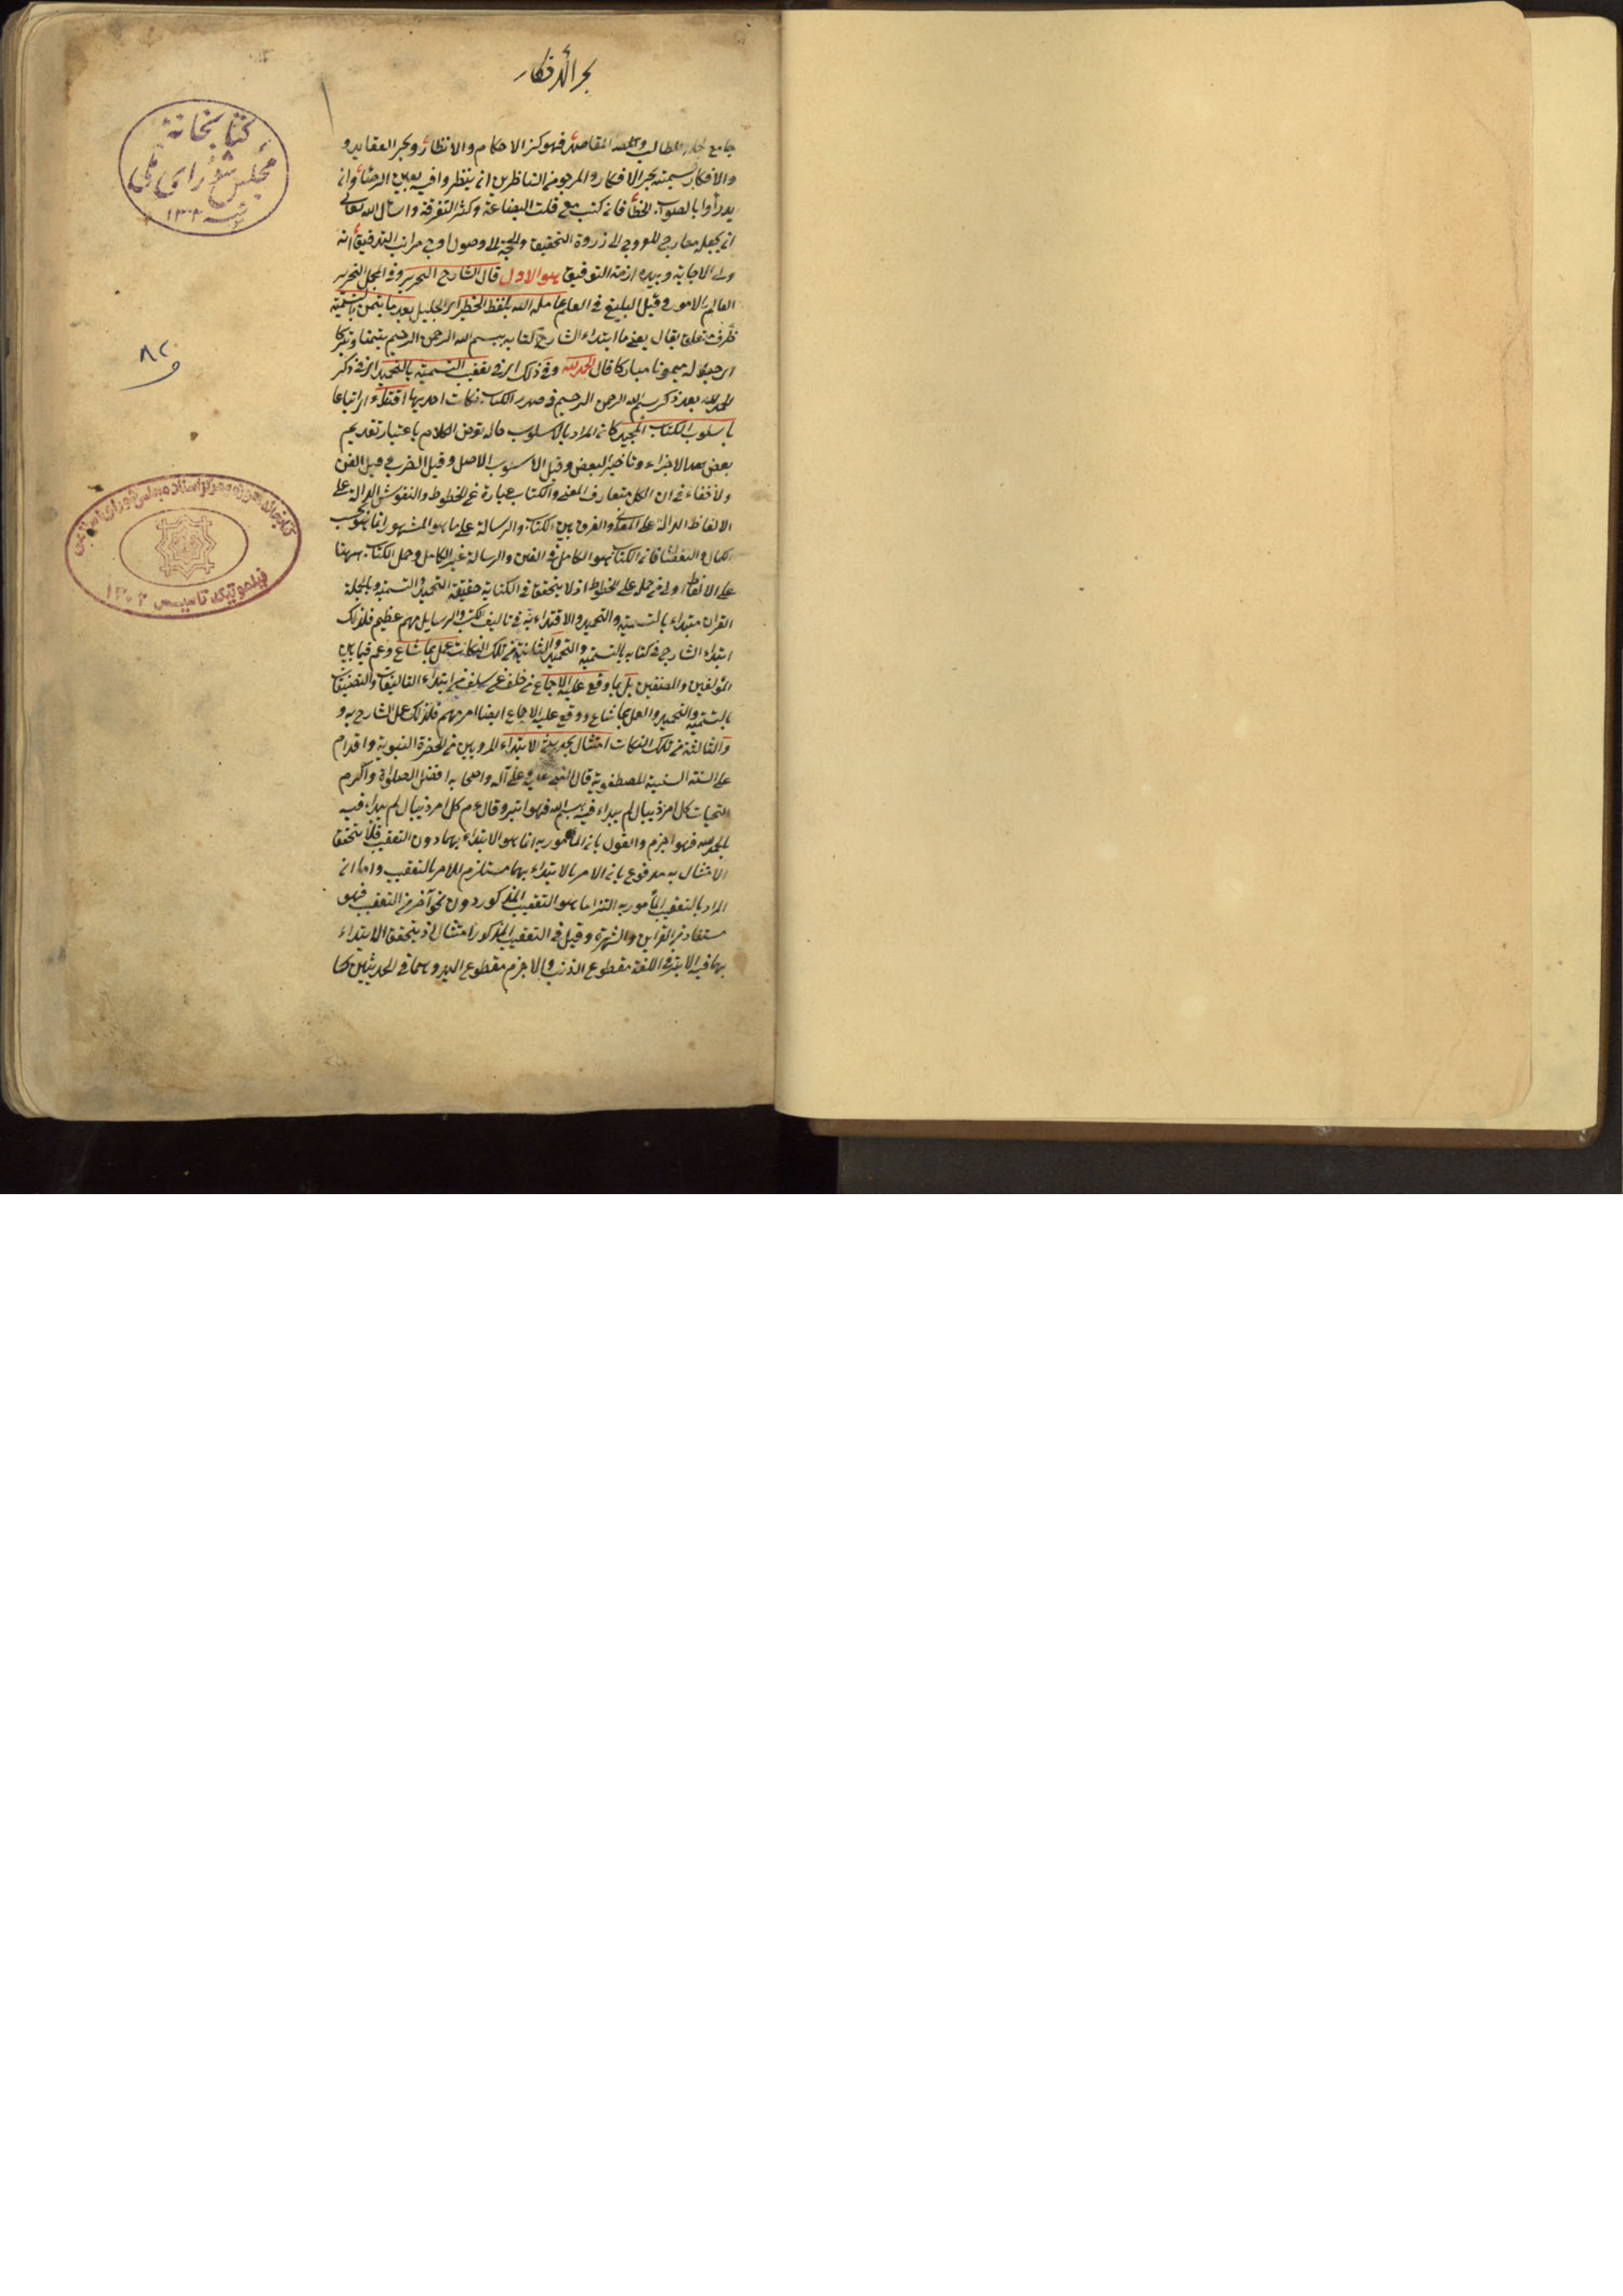 بحر الافكار
كتابخانهٔ
مجلس شورای ملی
١٣٠٢
٨٢
و
كتابخانه موزه و مركز اسناد مجلس شورای اسلامی
تاسیس ١٣٠٢
جامع المطالب المقاصد فهو كنز الاحكام والانظار وبحر العقايد و
والافكار سميته ببحر الافكار والمرجو من الناظرين ان ينظروا فيه بعين الرضا وان
يدرأوا بالصواب الخطأ فانى كتبت مع قلت البضاعة وكثر التفرقة واسأل الله تعالى
ان يجعله معارج للعروج الى ذروة التحقيق والوصول مراتب التدقيق انه
ولى الاجابة وبيده ازمة التوفيق هو الاول قال الشارح النحرير وفى المجمل النحرير
العالم بالامور وقيل البليغ فى العلم عامله الله بلطفه الخطير اى الجليل بعد ما تيمن بالتسمية
ظرف متعلق بقال يعنى ما ابتداء الشارح كتابه ببسم الله الرحمن الرحيم تيمنا وتبركا
اى جعله ميمونا مباركا قال الحمد لله وفى ذلك اى فى تعقيب التسمية بالتحميد اى فى ذكر
الحمد لله بعد ذكر بسم الله الرحمن الرحيم فى صدر الكتاب نكات احديها اقتداء اى اتباعا
باسلوب الكتاب المجيد كان المراد بالاسلوب حاله تعرض الكلام باعتبار تقديم
بعض الاجزاء وتاخير البعض وقيل الاسلوب الاصل وقيل الضرب وقيل الفن
ولا خفاء فى ان الكل متعارف المعنى والكتاب عبارة عن الخطوط والنقوش الدالة على
الالفاظ الدالة على المعنى والفرق بين الكتاب والرسالة على ما هو المشهور انما هو بحسب
الكمال والنقصان فان الكتاب هو الكامل فى الفن والرسالة غير الكامل وحمل الكتاب ههنا
على الالفاظ اولى من حمله على الخطوط اذ لا يتحقق فى الكتابة حقيقة التحميد والتسمية وبالجملة
القران مبتداء بالتسمية والتحميد والاقتداء به فى تاليف الكتب والرسايل مهم عظيم فلذلك
ابتداء الشارح فى كتابه بالتسمية والتحميد والثانية من تلك النكات عمل بما شاع وعم فيما بين
المؤلفين والمصنفين بل بما وقع عليه الاجماع من خلف عن سلف من ابتداء التاليفات والتصنيفات
بالتسمية والتحميد والعمل بما شاع ووقع عليه الاجماع ايضا امر مهم فلذلك عمل الشارح به و
والثالثة من تلك النكات امتثال بحديثى الابتداء المرويين من الحضرة النبوية واقدام
على السنة السنية المصطفوية قال النبى عليه وعلى آله واصحابه افضل الصلواة واكرم
التحيات كل امر ذيبال لم يبداء فيه ببسم الله فهو ابتر وقال م كل امر ذيبال لم يبداء فيه
بالحمد لله فهو اجزم والقول بان المأمور به انما هو الابتداء بهما دون التعقيب فلا يتحقق
الامتثال به مدفوع بان الامر بالابتداء بهما مستلزم للامر بالتعقيب واما ان
المراد بالتعقيب المأمور به التزاما هو التعقيب المذكور دون نحو آخر من التعقيب فهو
مستفاد من القراين والشهرة وقيل فى التعقيب المذكور امتثال اذ يتحقق الابتداء
بهما فيه الابتر فى اللغة مقطوع الذنب والاجزم مقطوع اليد وهما فى الحديثين كنا